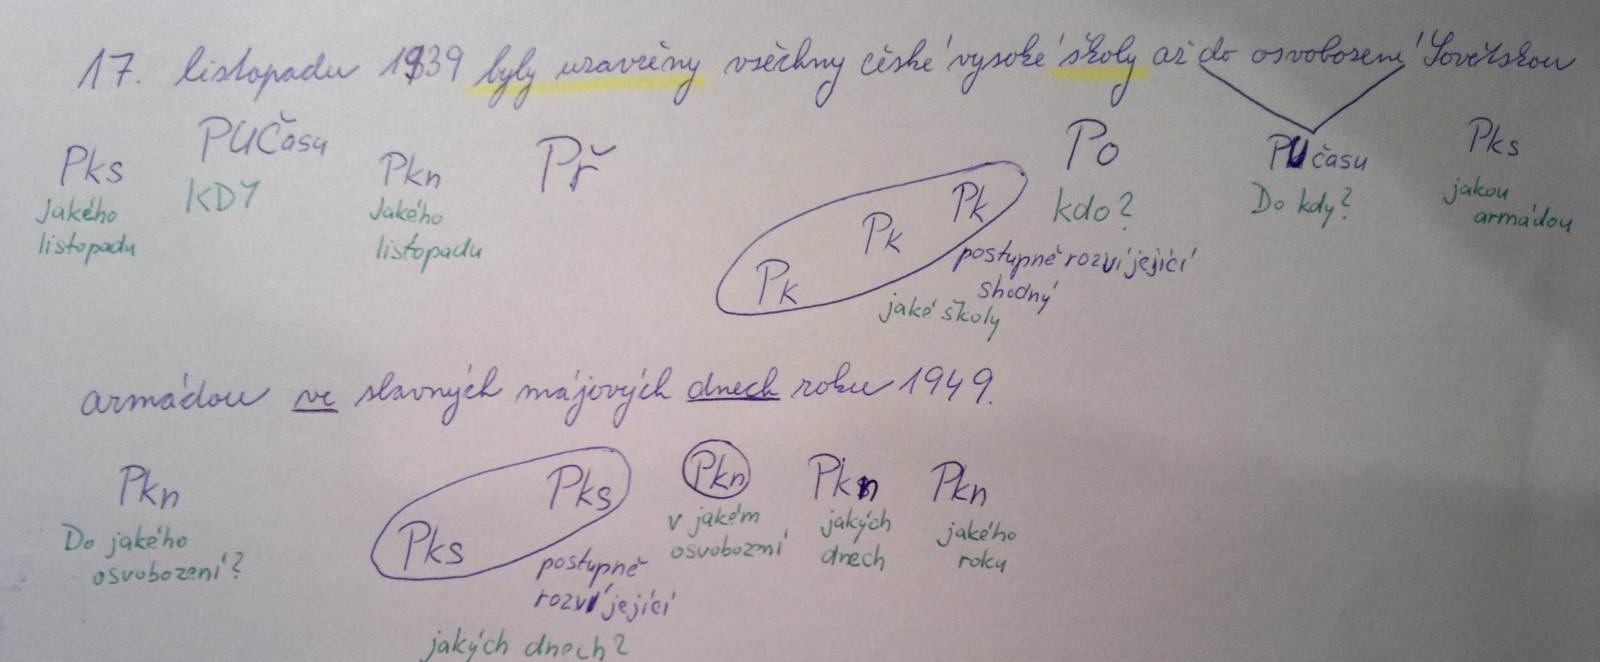 17. listopadu 1939 byly uzavřeny všechny české vysoké školy až do osvobození Sovětskou
Pks PUČasu Pkn Př Pk Pk Pk Po PU času Pks
jakého listopadu KDY Jakého listopadu kdo? Do kdy? jakou armádou
postupně rozvíjející shodný
jaké školy
armádou ve slavných májových dnech roku 1949.
Pkn Pks Pks Pkn Pkn Pkn
Do jakého osvobození? v jakém osvobození jakých dnech jakého roku
postupně rozvíjející
jakých dnech?